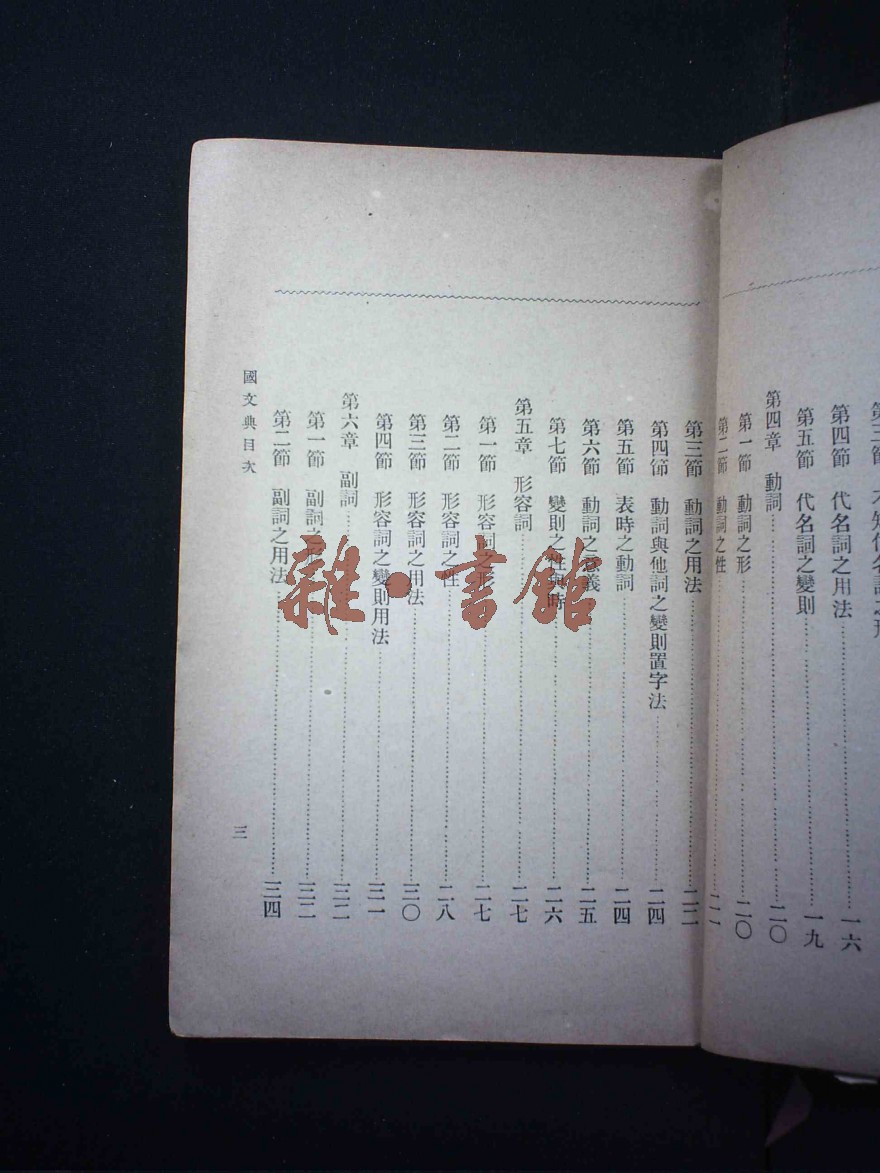 第四節 代名詞之用法……一六
第五節 代名詞之變則……一九
第四章 動詞……二〇
第一節 動詞之形……二〇
第二節 動詞之性……二一
第三節 動詞之用法……二二
第四節 動詞與他詞之變則置字法……二四
第五節 表時之動詞……二四
第六節 動詞之意義……二五
第七節 變則之性與時……二六
第五章 形容詞……二七
第一節 形容詞之形……二七
第二節 形容詞之性……二八
第三節 形容詞之用法……三〇
第四節 形容詞之變則用法……三一
第六章 副詞……三二
第一節 副詞之形……三二
第二節 副詞之用法……三四
國文典目次
三
雜·書館